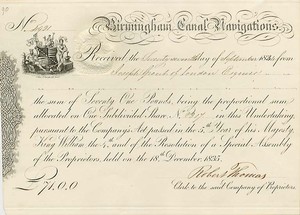 No.
Birmingham Canal Navigations.
Received the Twenty seventh Day of September 1836 from
Joseph Grout of London Esquire
the sum of Seventy One Pounds, being the proportional sum
allocated on One Subdivided Share, No. in this Undertaking
pursuant to the Company's Act passed in the 5th Year of his Majesty,
King William the 4, and of the Resolution of a Special Assembly
of the Proprietors, held on the 18th December, 1835.
£71.0.0
Robert Thomas
Clerk to the said Company of Proprietors.